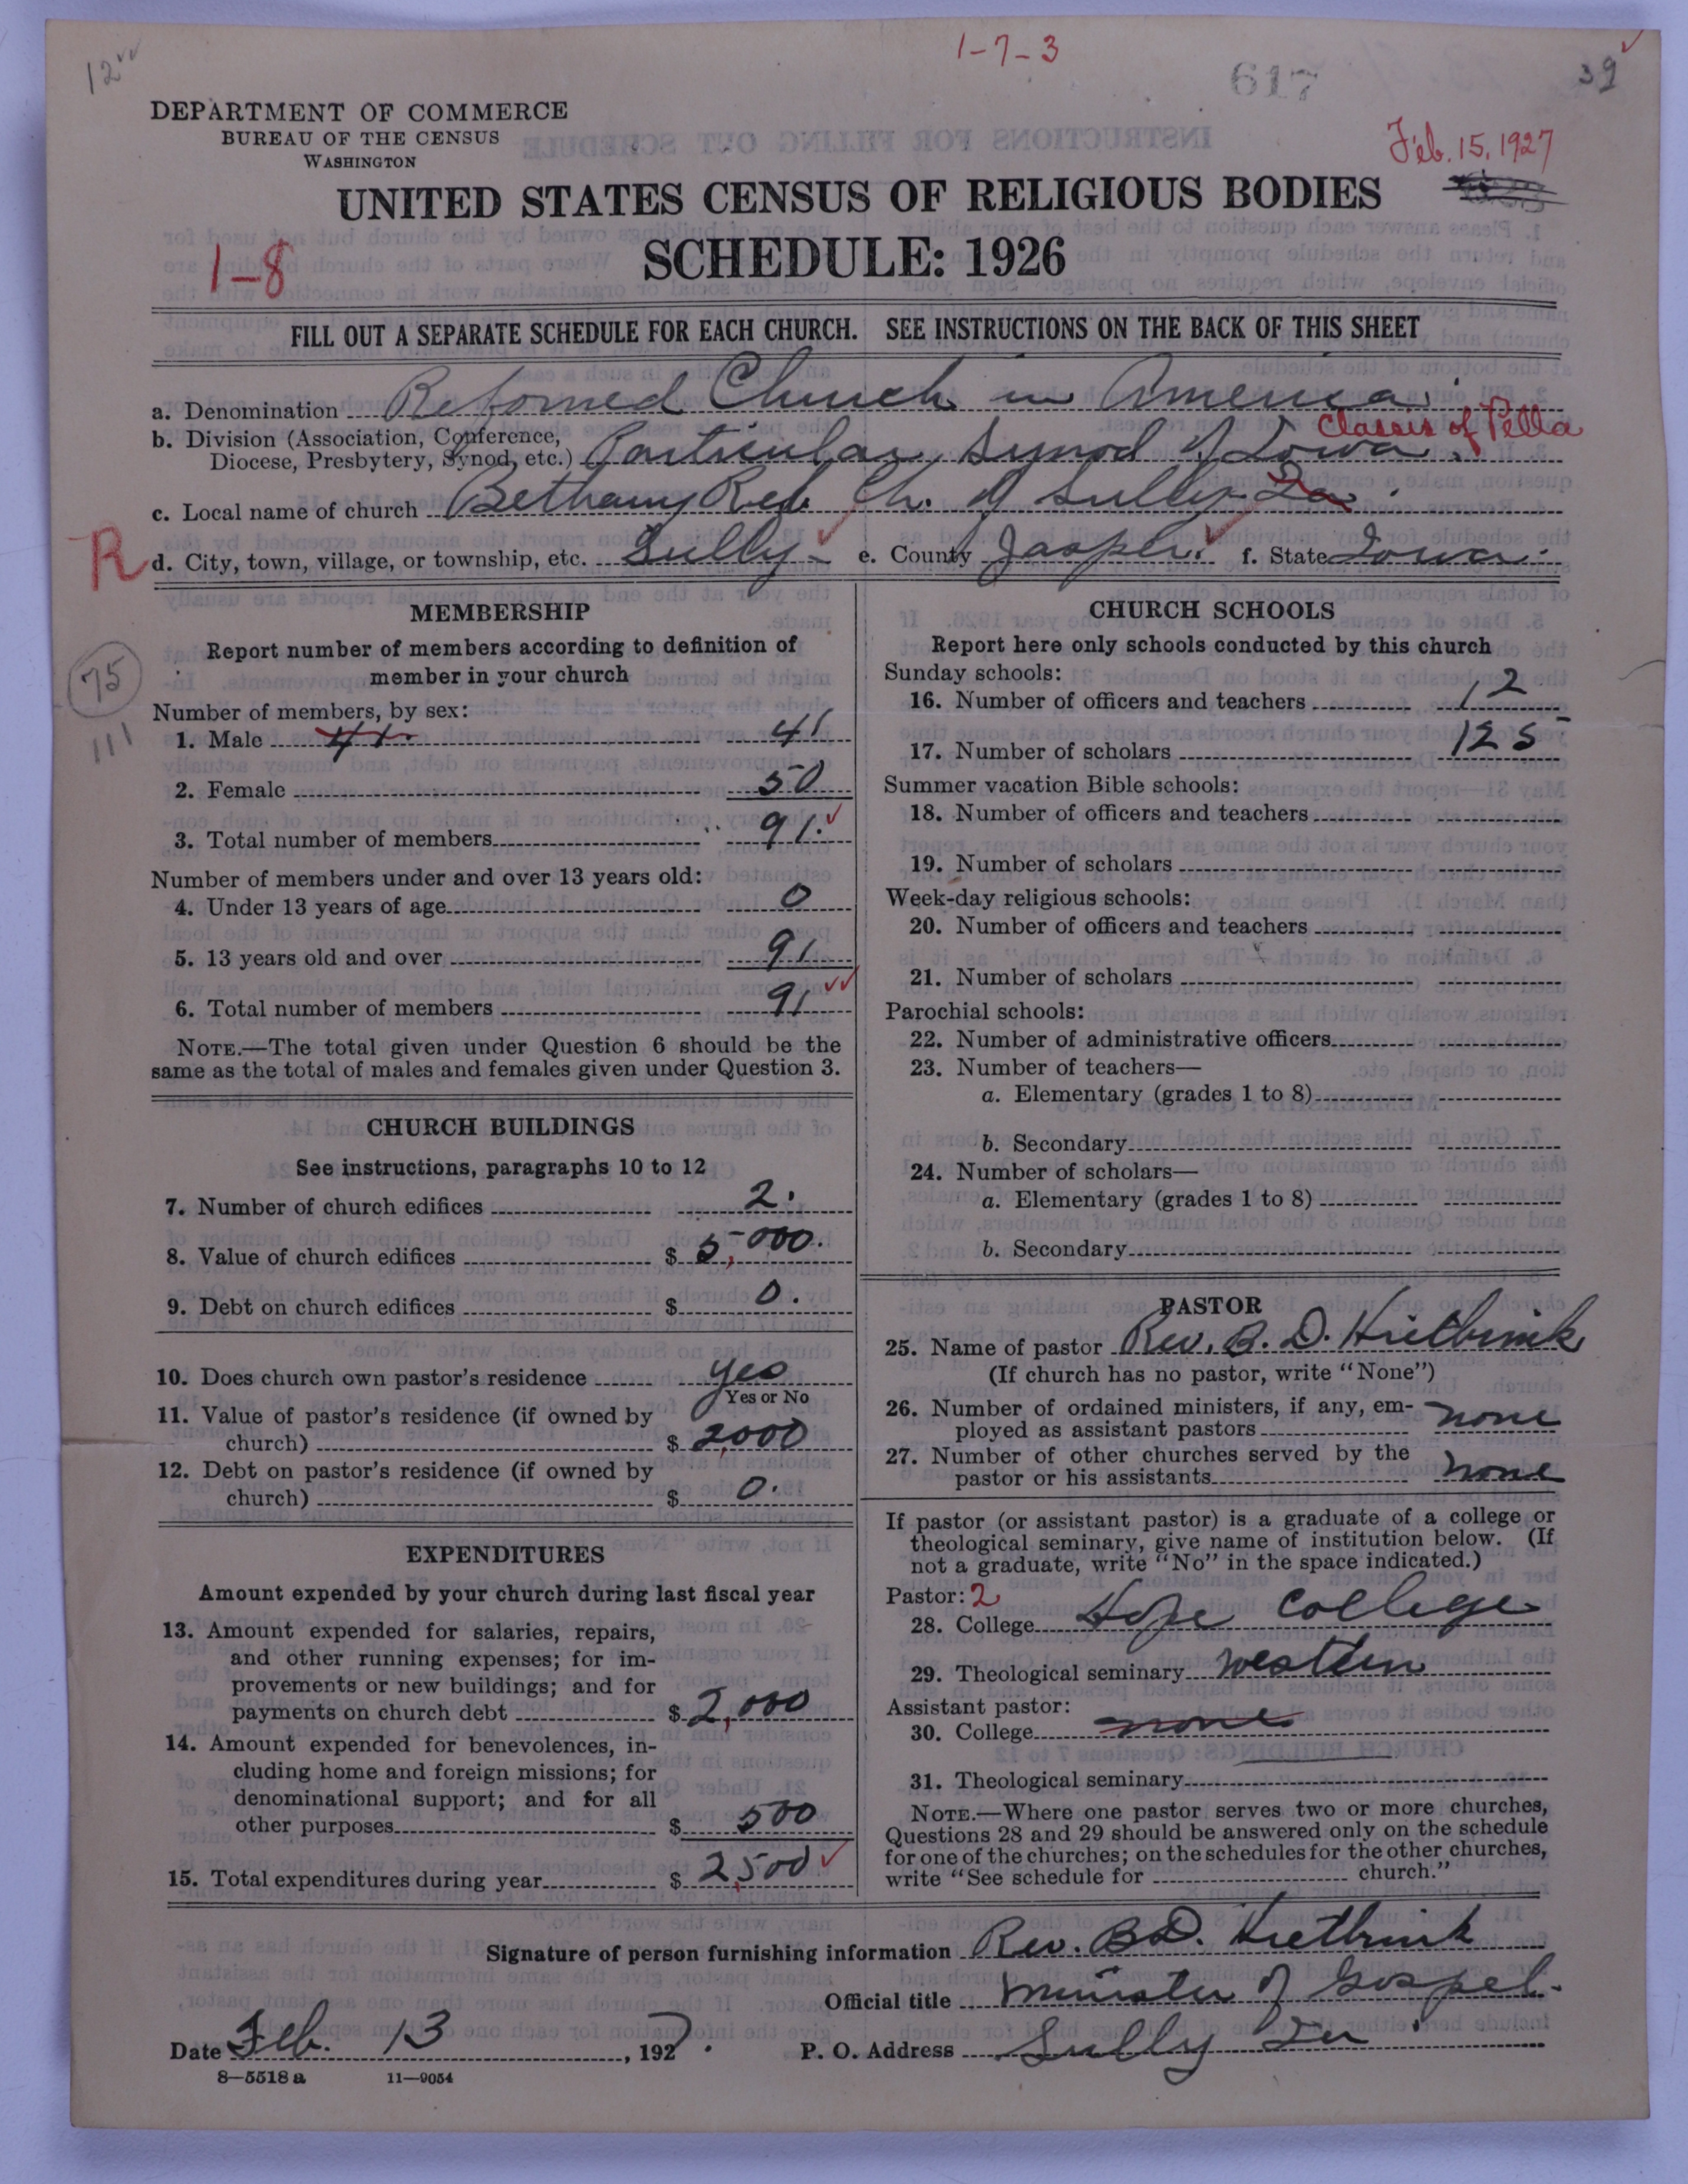 12
1-7-3
617
39
DEPARTMENT OF COMMERCE
BUREAU OF THE CENSUS
WASHINGTON
Feb. 15, 1927
UNITED STATES CENSUS OF RELIGIOUS BODIES
SCHEDULE: 1926
1-8
FILL OUT A SEPARATE SCHEDULE FOR EACH CHURCH. SEE INSTRUCTIONS ON THE BACK OF THIS SHEET
a. Denomination Reformed Church in America
Classis of Pella
b. Division (Association, Conference,
Diocese, Presbytery, Synod, etc.) Particular Synod of Iowa.
c. Local name of church Bethany Ref. Ch. of Sully Ia.
R
d. City, town, village, or township, etc. Sully e. County Jasper. f. State Iowa.
MEMBERSHIP
Report number of members according to definition of
member in your church
75
111
Number of members, by sex:
1. Male 41. 41
2. Female 50
3. Total number of members 91.
Number of members under and over 13 years old:
4. Under 13 years of age 0
5. 13 years old and over 91
6. Total number of members 91
NOTE.—The total given under Question 6 should be the
same as the total of males and females given under Question 3.
CHURCH BUILDINGS
See instructions, paragraphs 10 to 12
7. Number of church edifices 2.
8. Value of church edifices $ 5,000.
9. Debt on church edifices $ 0.
10. Does church own pastor's residence yes
Yes or No
11. Value of pastor's residence (if owned by
church) $ 2000
12. Debt on pastor's residence (if owned by
church) $ 0.
EXPENDITURES
Amount expended by your church during last fiscal year
13. Amount expended for salaries, repairs,
and other running expenses; for im-
provements or new buildings; and for
payments on church debt $ 2,000
14. Amount expended for benevolences, in-
cluding home and foreign missions; for
denominational support; and for all
other purposes $ 500
15. Total expenditures during year $ 2,500
CHURCH SCHOOLS
Report here only schools conducted by this church
Sunday schools:
16. Number of officers and teachers 12
17. Number of scholars 125
Summer vacation Bible schools:
18. Number of officers and teachers
19. Number of scholars
Week-day religious schools:
20. Number of officers and teachers
21. Number of scholars
Parochial schools:
22. Number of administrative officers
23. Number of teachers—
a. Elementary (grades 1 to 8)
b. Secondary
24. Number of scholars—
a. Elementary (grades 1 to 8)
b. Secondary
PASTOR
25. Name of pastor Rev. B. D. Hietbrink
(If church has no pastor, write "None")
26. Number of ordained ministers, if any, em-
ployed as assistant pastors none
27. Number of other churches served by the
pastor or his assistants none
If pastor (or assistant pastor) is a graduate of a college or
theological seminary, give name of institution below. (If
not a graduate, write "No" in the space indicated.)
Pastor: 2
28. College Hope College
29. Theological seminary Western
Assistant pastor:
30. College none
31. Theological seminary
NOTE.—Where one pastor serves two or more churches,
Questions 28 and 29 should be answered only on the schedule
for one of the churches; on the schedules for the other churches,
write "See schedule for church."
Signature of person furnishing information Rev. B D. Hietbrink
Official title Minister of Gospel.
Date Feb. 13, 1927. P. O. Address Sully Ia.
8—5518 a 11—9054